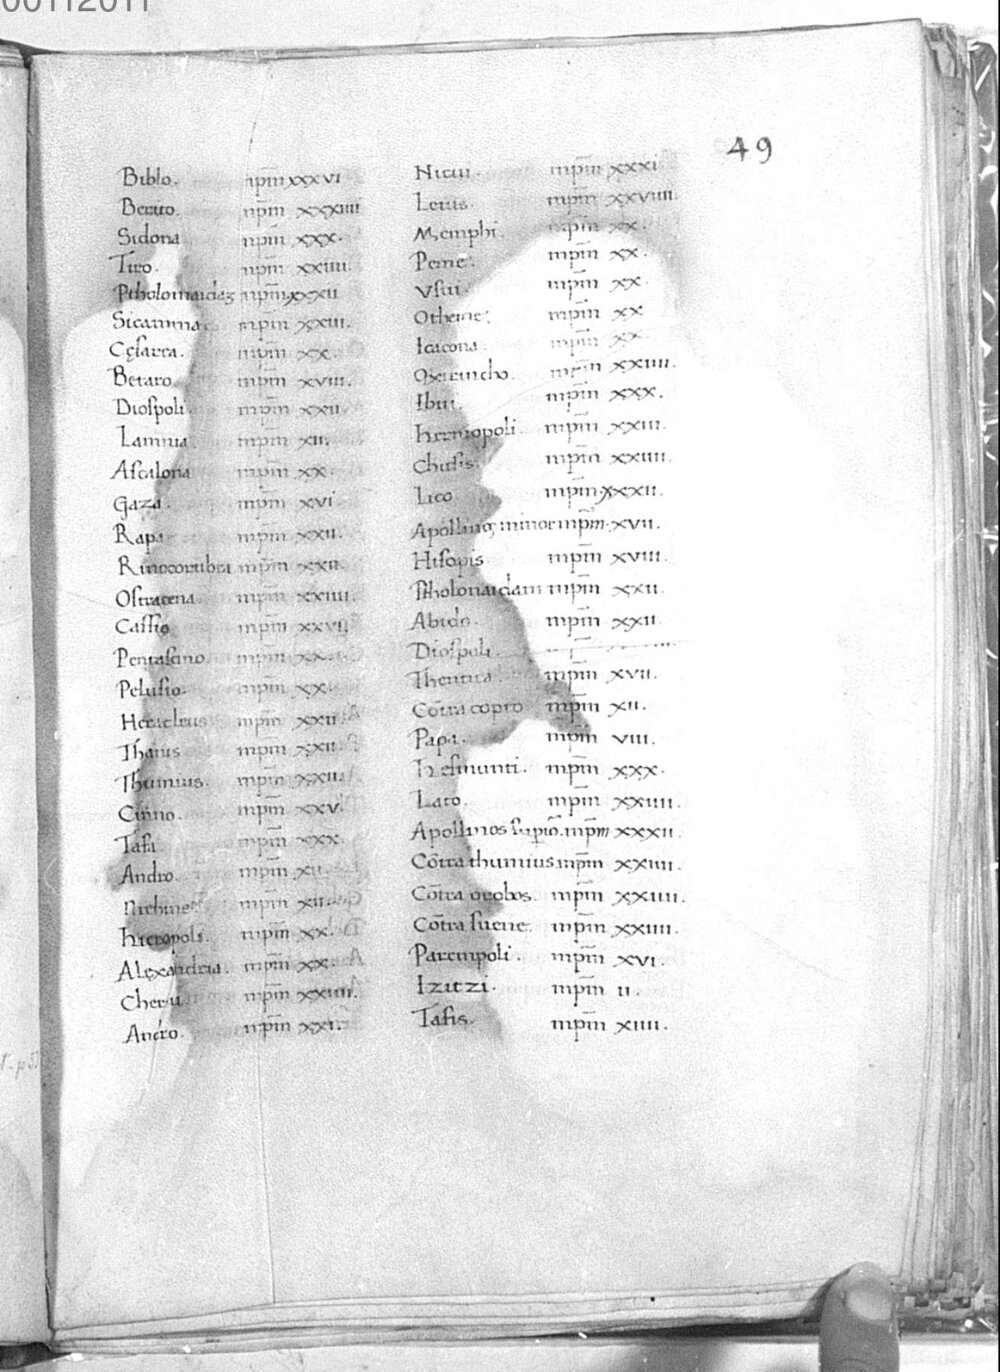 49
Biblo. mpm xxxvi
Berito. mpm xxxiiii
Sidona mpm xxx.
Tiro. mpm xxiiii.
Ptholomaidaę mpm xxxii
Sicamina. mpm xxiii.
Cęsarea. mpm xx.
Betaro mpm xviii.
Diospoli mpm xxii.
Lamnia mpm xii.
Ascalona mpm xx.
Gaza. mpm xvi
Rapa mpm xxii.
Rinocorubra mpm xxii.
Ostracena mpm xxiiii.
Cassio mpm xxvi
Pentascino
Pelusio. mpm xx.
Heracleus mpm xxii.
Thanis mpm xxii
Thumius. mpm xxii.
Cinno. mpm xxv.
Tafa. mpm xxx.
Andro. mpm xii.
mpm xii
Hieropoli. mpm xx.
Alexandria. mpm xx.
Chereu mpm xxiiii.
Andro. mpm xxi.
Niciu. mpm xxxi.
Letus. mpm xxviiii.
Memphi. mpm xx.
Peme. mpm xx.
Usui. mpm xx.
Othenne. mpm xx
Icacona. mpm xx.
Oxirincho. mpm xxiiii.
Ibiu. mpm xxx.
Hermopoli. mpm xxiii.
Chusis. mpm xxiiii.
Lico mpm xxxii.
Apollinę minor mpm xvii.
Hisopis mpm xviii.
Ptholomaidam mpm xxii.
Abido. mpm xxii.
Diospoli
Thentira. mpm xvii.
Cōtra copto mpm xii.
Papa. mpm viii.
Hesmunti. mpm xxx.
Lato. mpm xxiiii.
Apollinos supio. mpm xxxii.
Cōtra thumius mpm xxiiii.
Cōtra ombos. mpm xxiiii.
Cōtra suene. mpm xxiiii.
Parempoli. mpm xvi.
Izitzi. mpm ii.
Tafis. mpm xiiii.